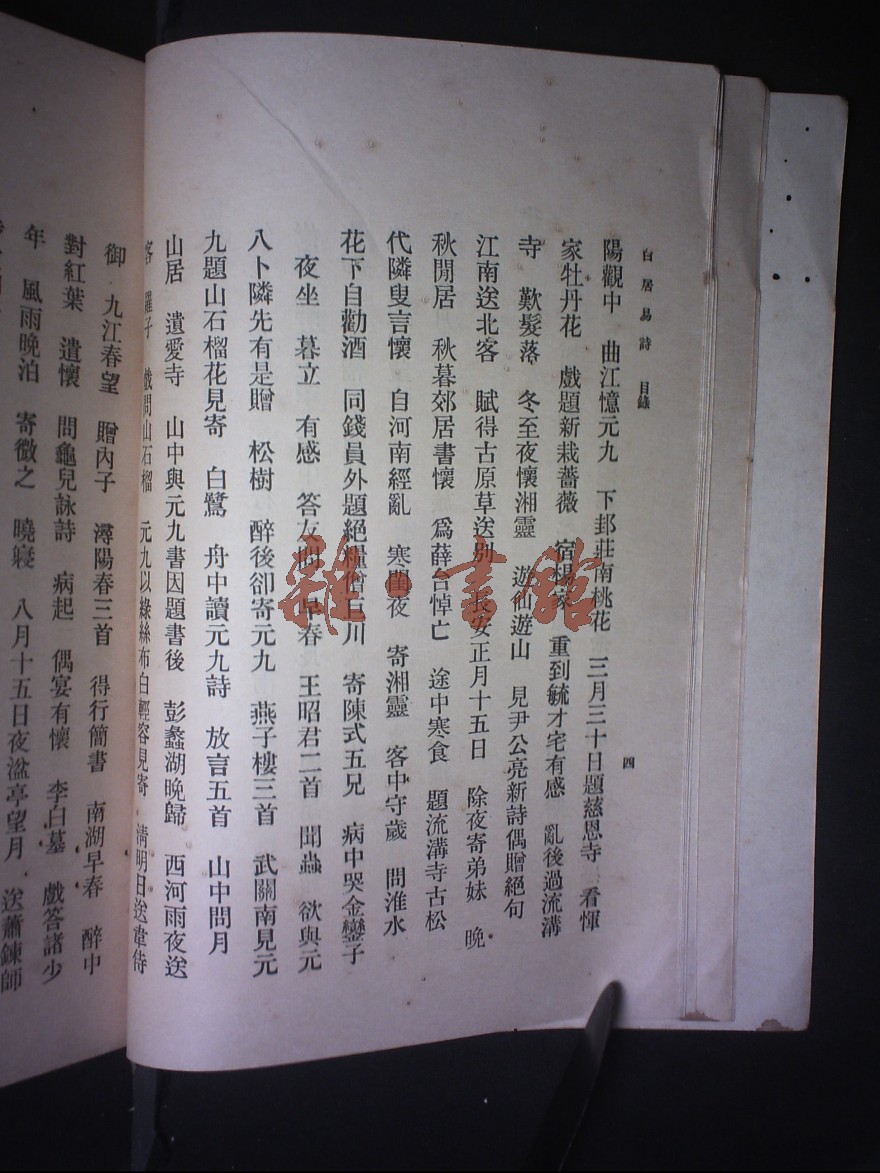 白居易詩 目錄
四
陽觀中 曲江憶元九 下邽莊南桃花 三月三十日題慈恩寺 看惲
家牡丹花 戲題新栽薔薇 宿楊家 重到毓才宅有感 亂後過流溝
寺 歎髮落 冬至夜懷湘靈 遊仙遊山 見尹公亮新詩偶贈絕句
江南送北客 賦得古原草送別 長安正月十五日 除夜寄弟妹 晚
秋閒居 秋暮郊居書懷 爲薛台悼亡 途中寒食 題流溝寺古松
代隣叟言懷 自河南經亂 寒閨夜 寄湘靈 客中守歲 問淮水
花下自勸酒 同錢員外題絕糧僧巨川 寄陳式五兄 病中哭金鑾子
夜坐 暮立 有感 答友問 早春 王昭君二首 聞蟲 欲與元
八卜隣先有是贈 松樹 醉後卻寄元九 燕子樓三首 武關南見元
九題山石榴花見寄 白鷺 舟中讀元九詩 放言五首 山中問月
山居 遺愛寺 山中與元九書因題書後 彭蠡湖晚歸 西河雨夜送
客 羅子 戲問山石榴 元九以綠絲布白輕容見寄 清明日送韋侍
御 九江春望 贈內子 潯陽春三首 得行簡書 南湖早春 醉中
對紅葉 遣懷 問龜兒詠詩 病起 偶宴有懷 李白墓 戲答諸少
年 風雨晚泊 寄微之 曉寢 八月十五日夜湓亭望月 送蕭鍊師
雜·書館